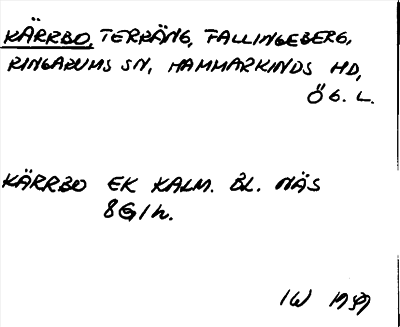 KÄRRBO, TERRÄNG, FALLINGEBERG,
RINGARUMS SN, HAMMARKINDS HD,
ÖG. L.
KÄRRBO EK KALM. BL. NÄS
8G1h.
IW 1979